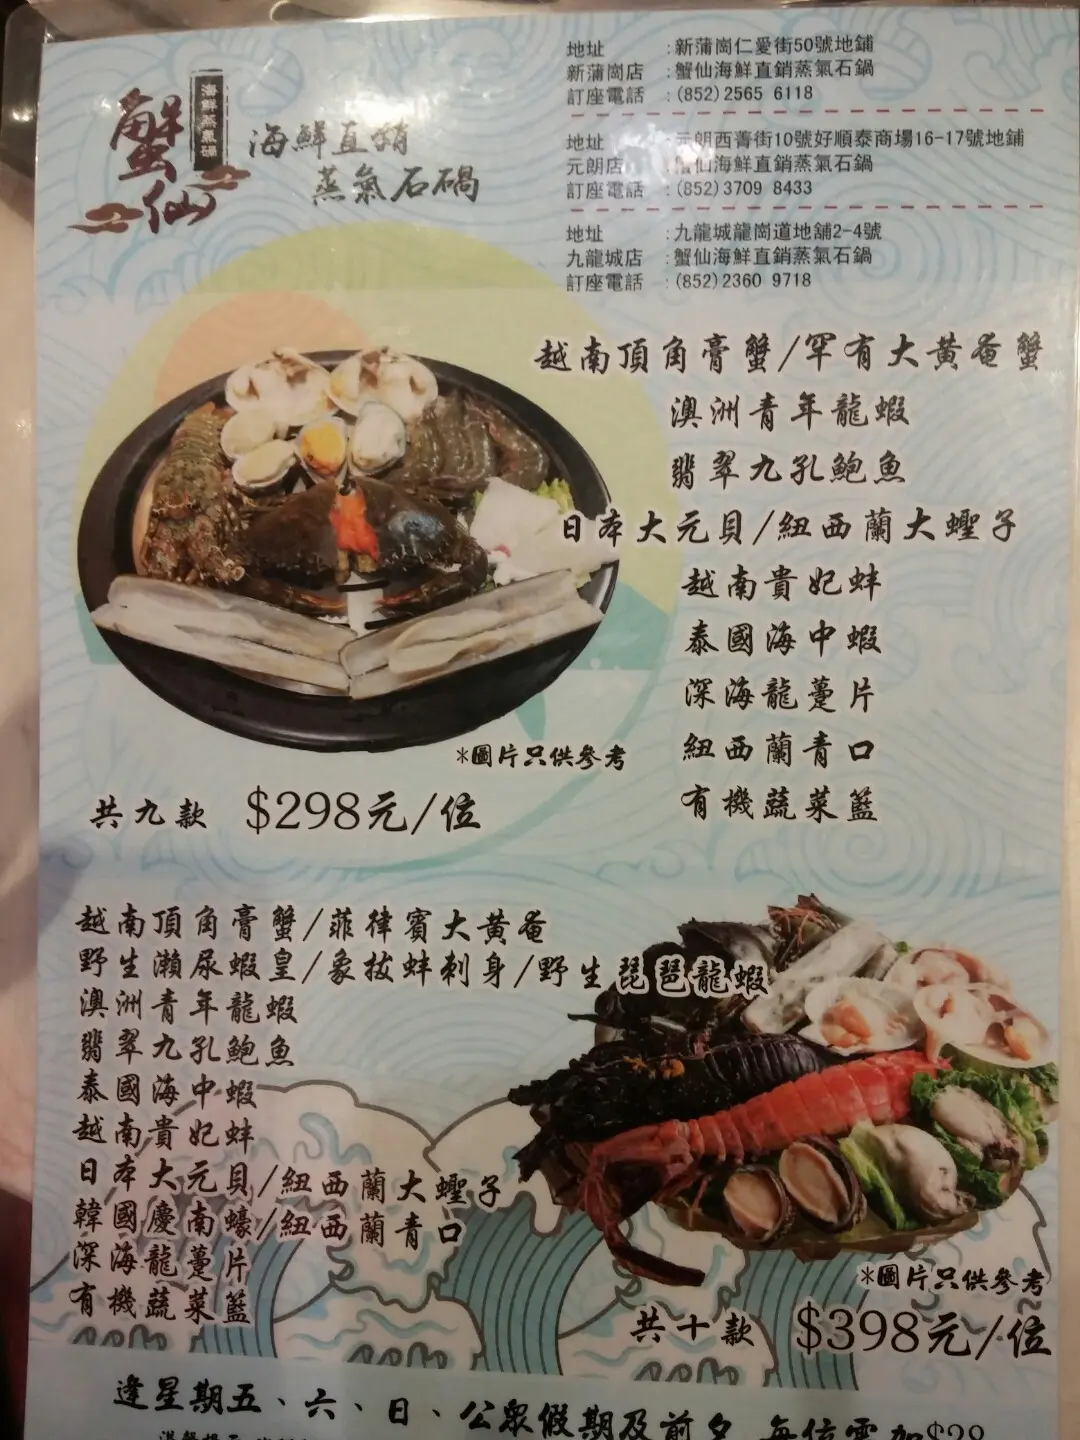 海鮮蒸氣石鍋
蟹仙
海鮮直銷
蒸氣石鍋
地址 :新蒲崗仁愛街50號地鋪
新蒲崗店 :蟹仙海鮮直銷蒸氣石鍋
訂座電話 :(852)2565 6118
地址 :元朗西菁街10號好順泰商場16-17號地鋪
元朗店 :蟹仙海鮮直銷蒸氣石鍋
訂座電話 :(852)3709 8433
地址 :九龍城龍崗道地舖2-4號
九龍城店 :蟹仙海鮮直銷蒸氣石鍋
訂座電話 :(852)2360 9718
越南頂角膏蟹/罕有大黃奄蟹
澳洲青年龍蝦
翡翠九孔鮑魚
日本大元貝/紐西蘭大蟶子
越南貴妃蚌
泰國海中蝦
深海龍躉片
紐西蘭青口
有機蔬菜籃
*圖片只供參考
共九款 $298元/位
越南頂角膏蟹/菲律賓大黃奄
野生瀨尿蝦皇/象拔蚌刺身/野生琵琶龍蝦
澳洲青年龍蝦
翡翠九孔鮑魚
泰國海中蝦
越南貴妃蚌
日本大元貝/紐西蘭大蟶子
韓國慶南蠔/紐西蘭青口
深海龍躉片
有機蔬菜籃
*圖片只供參考
共十款 $398元/位
逢星期五、六、日、公眾假期及前夕 每位需加$28